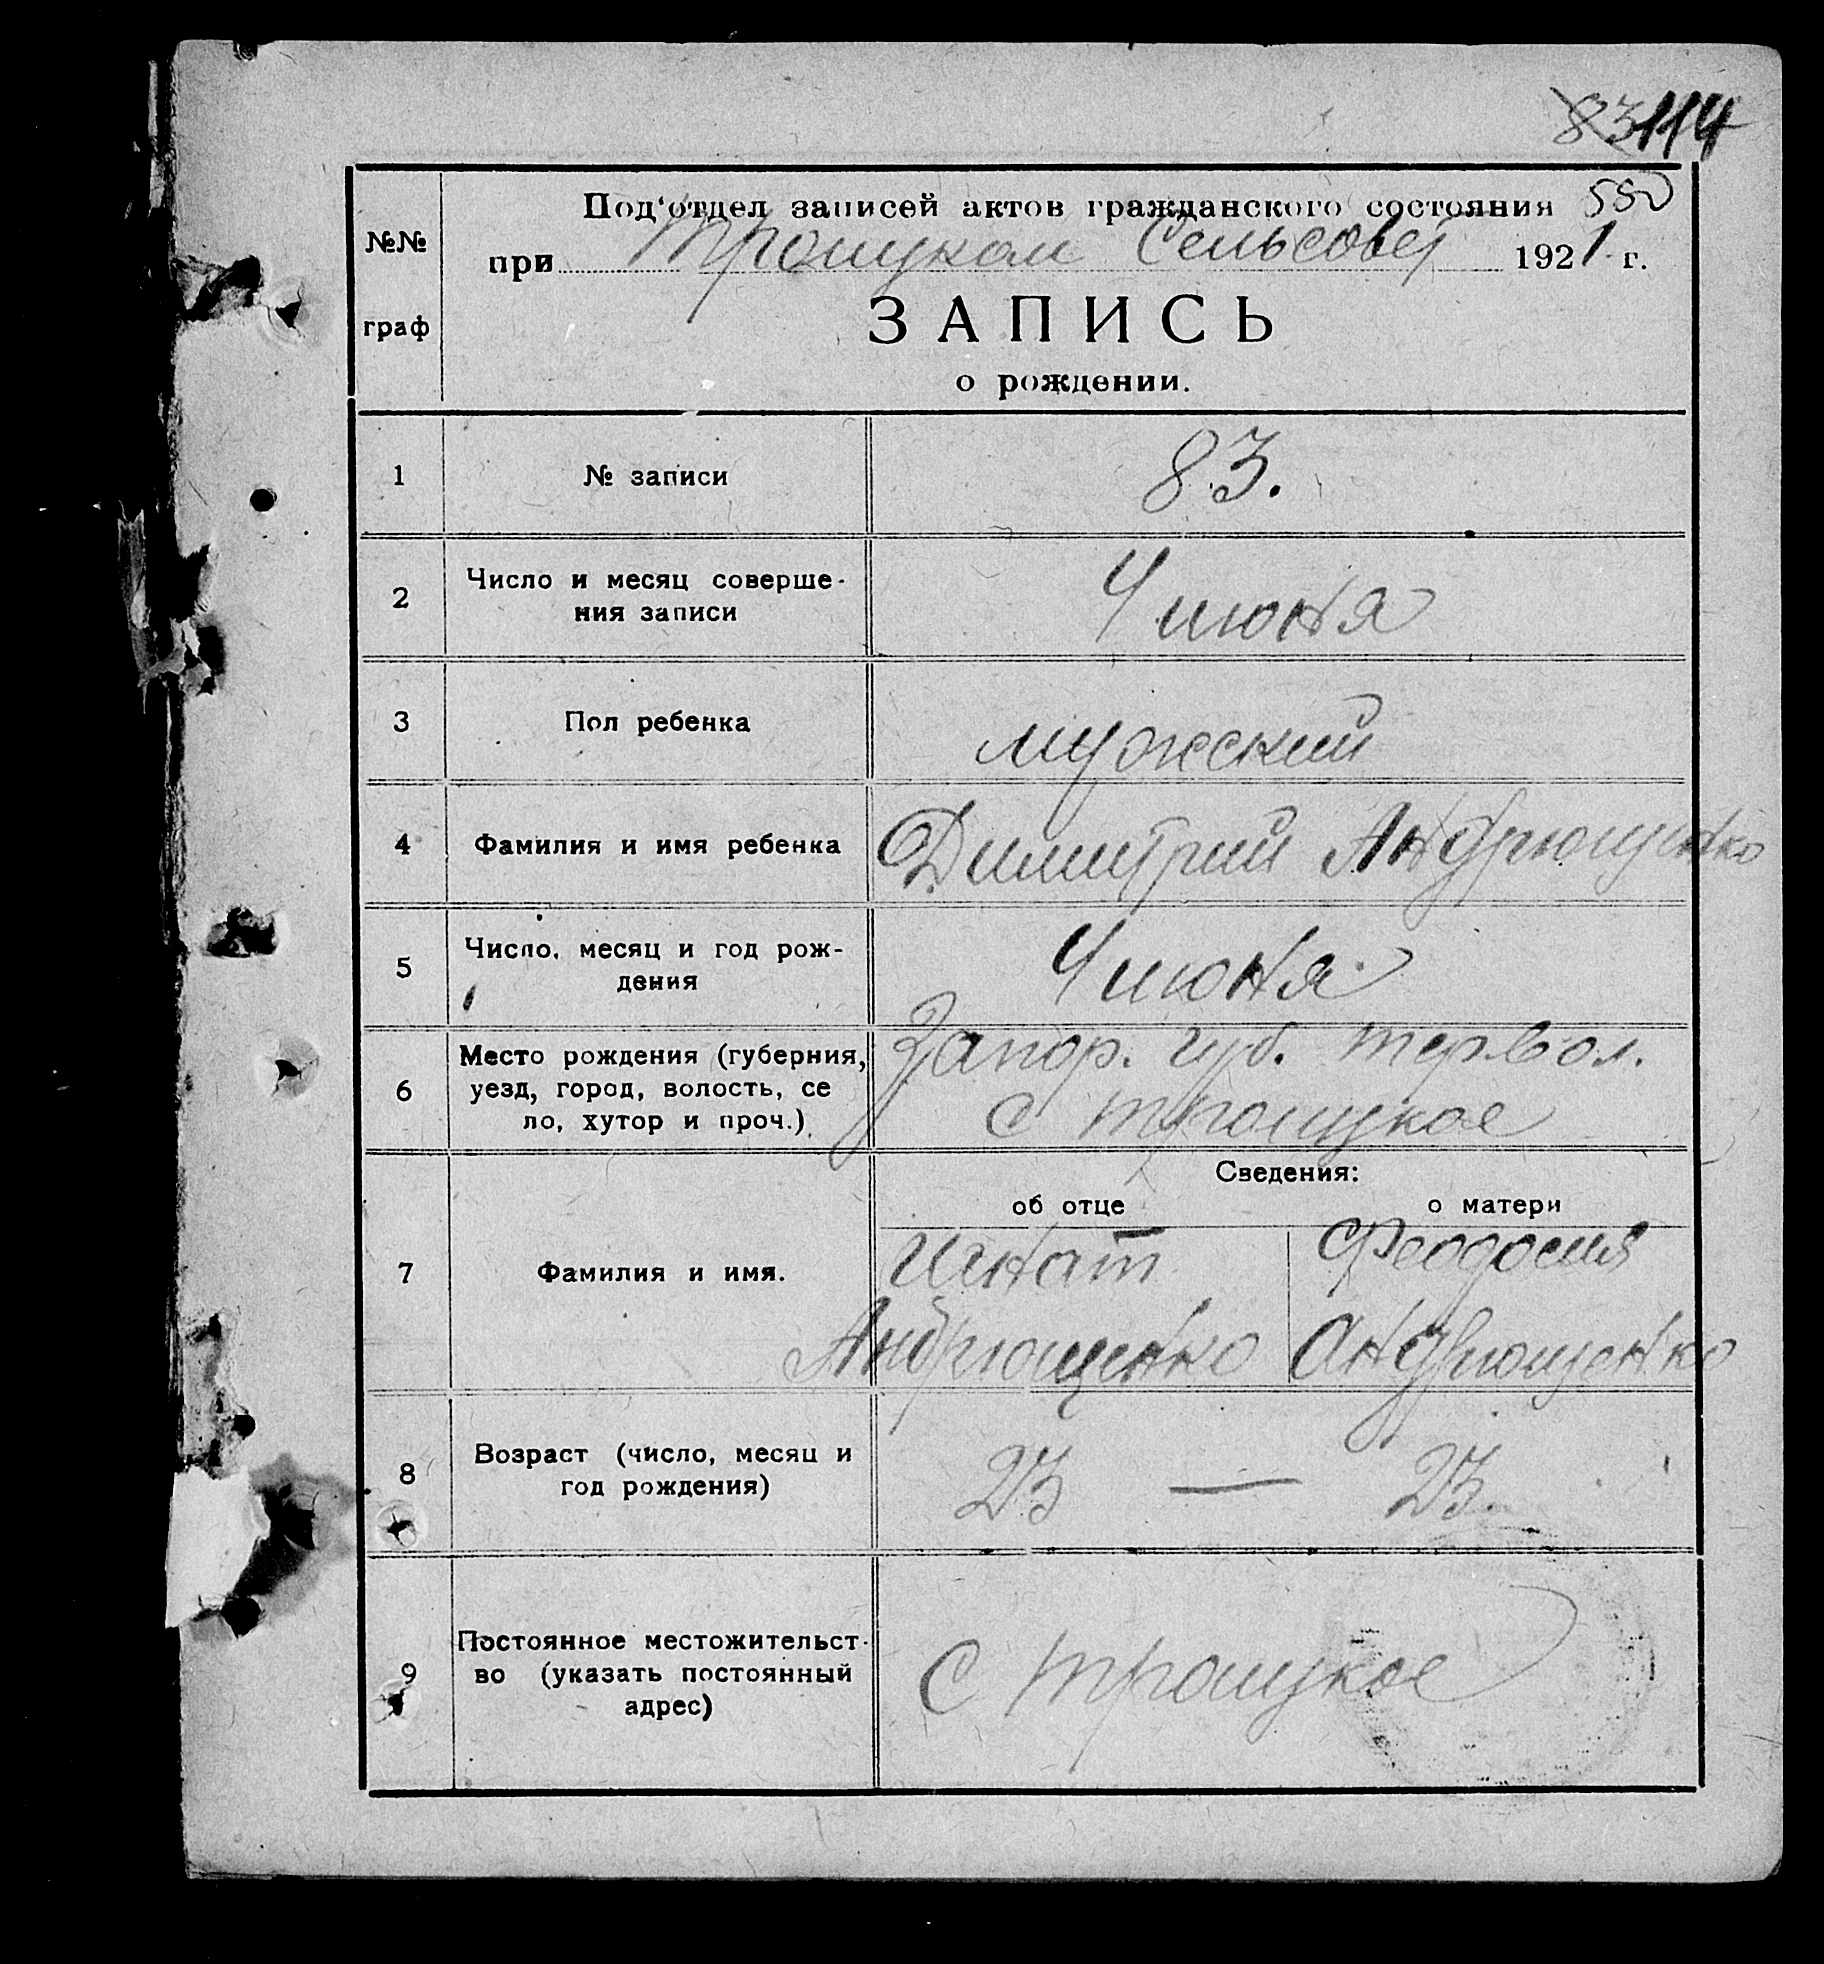 83 114
Под'отдел записей актов гражданского состояния 550
№№
при Троицком Сельсовет 1921 г.
граф
ЗАПИСЬ
о рождении.
1 № записи 83.
2 Число и месяц соверше-
ния записи
4 июня
3 Пол ребенка мужский
4 Фамилия и имя ребенка Димитрий Андрющенко
5 Число, месяц и год рож-
дения
4 июня
6 Место рождения (губерния,
уезд, город, волость, се
ло, хутор и проч.)
Запор. губ. Тер вол.
с Троицкое
Сведения:
об отце о матери
7 Фамилия и имя.
Игнат
Андрющенко
Феодосия
Андрющенко
8 Возраст (число, месяц и
год рождения)
23 — 23.
9 Постоянное местожительст-
во (указать постоянный
адрес)
с Троицкое